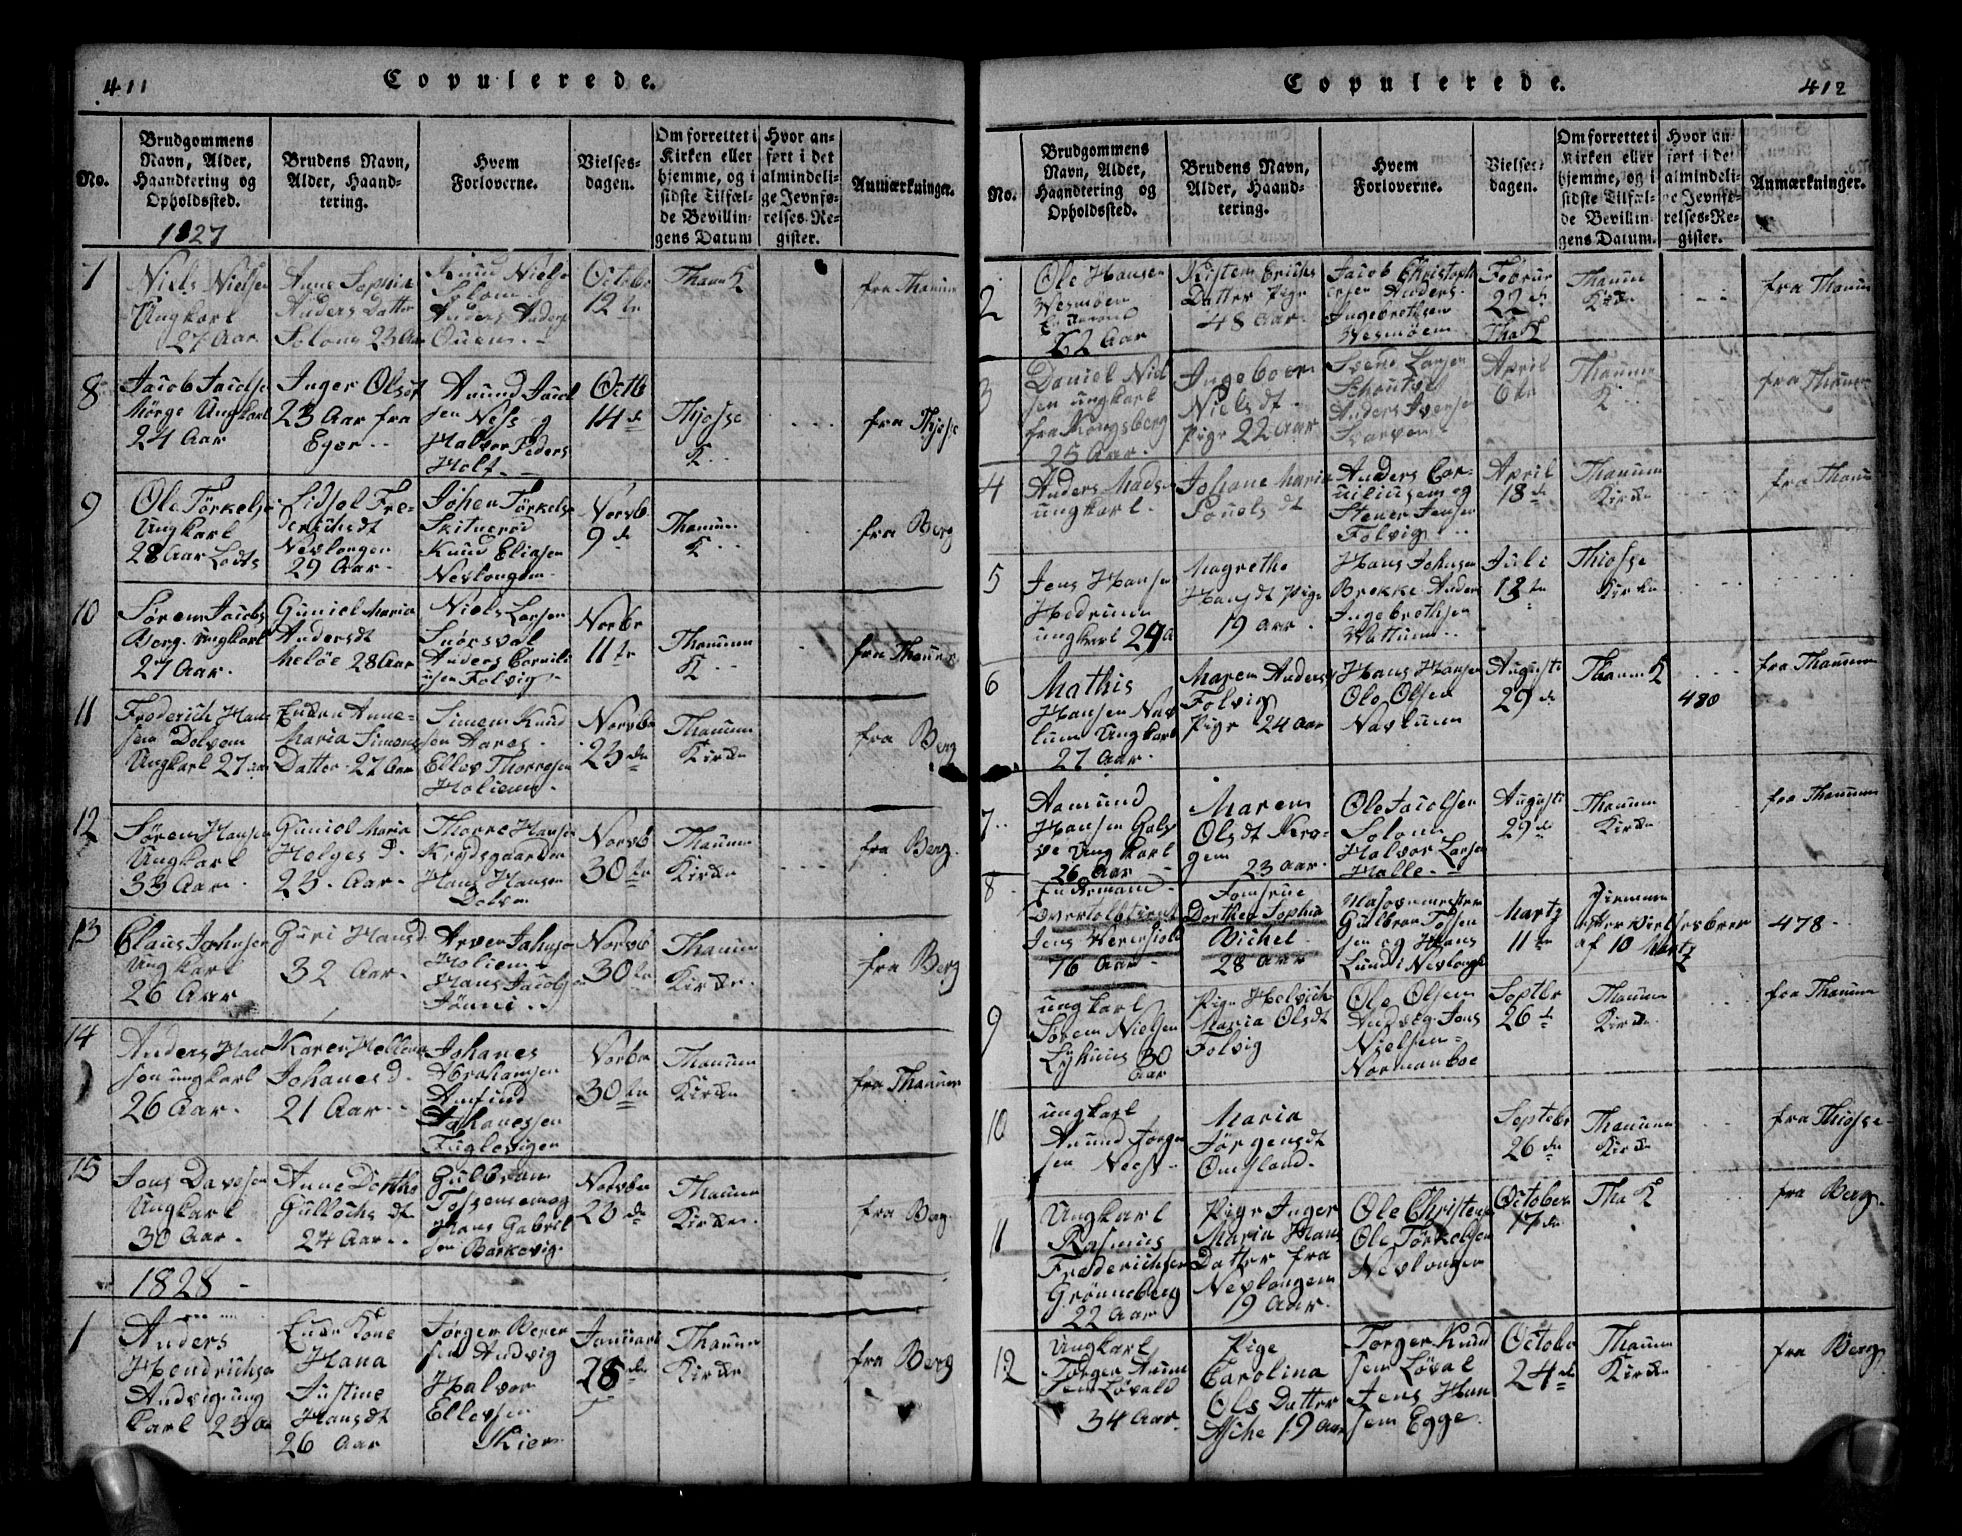 411
Copulerede.
No.
Brudgommens
Navn, Alder,
Haandtering og
Opholdssted.
Brudens Navn,
Alder, Haand-
tering.
Hvem
Forloverne.
Vielses-
dagen.
Om forrettet i
Kirken eller
hjemme, og i
sidste Tilfæl-
de Bevillin-
gens Datum
Hvor an-
ført i det
almindeli-
ge Jevnfø-
relses-Re-
gister.
Anmærkninger.
1827
7
Niels Nielsen
Ungkarl
27 Aar
Anne Sophie
Anders Datter
Solom 23 Aar
Knud Niels
Solom
Anders Anders
October
12te
Thanum K
fra Thanum
8
Jacob Jacobse
Ungkarl
24 Aar
Inger Olsdt
23 Aar fra
Eger
Anund Jacob
sen Næss og
Halvor Peders
Holt
Octb
14de
Thjosse
K
fra Thjosse
9
Ole Törkelse
Ungkarl
28 Aar Lods
Sidsel Fre-
derichsdt
Nevlongen
29 Aar
Johen Törkels
Knud Eliasen
Nevlongen
Novb
9de
Thanum
K
fra Berg
10
Sören Jacobs
Berg Ungkarl
27 Aar.
Guniel Maria
Andersdt
Melöe 28 Aar
Niels Larsen
Anders Corneli
usen Folvig
Novbr
11te
Thanum
K
fra Thanum
11
Frederich Han
sen Dolven
Ungkarl 27 aar
Enken Anne
Maria Simons
Datter 27 Aar
Simen Knud
sen Aaros
Ellev Thorresen
Holiem
Novbr
23de
Thanum
Kirke
fra Berg
12
Sören Hansen
Ungkarl
33 Aar
Guniel Maria
Helges D.
23 Aar
Thorre Hansen
Krydsgaarden
Hans Hansen
Dolven
Novb
30te
Thanum
Kirke
fra Berg.
13
Claus Johnsen
Ungkarl
26 Aar
Guri Hansd
32 Aar
Arven Johnsen
Holiem
Hans Jacobsen
Jönne
Novb
30te
Thanum
Kirke.
fra Berg
14
Anders Han
sen ungkarl
26 Aar.
Karen Hellena
Johanes D.
21 Aar
Johanes
Abrahamsen
Amund
Johanessen
Fuglevigen
Novbr
30te
Thanum
Kirke
fra Thanum
15
Jens Davidsen
Ungkarl
30 Aar.
Anne Dorthe
Gullochs dt
24 Aar
Gulbran
Tossensen og
Hans Gabriel
sen Barkevig
Novbr
23de
Thanum
Kirke.
fra Berg.
1828
1
Anders
Hendrichsen
Andvig ung
karl 23 Aar
Enke Kone
Hana
Justine
Hansdt
26 Aar
Jörgen Berer
sen Andvig
Halvor
Ellevsen
Skier
Januari
28de
Thanum
Kirke
fra Berg
Copulerede.
412
No.
Brudgommens
Navn, Alder,
Haandtering og
Opholdssted.
Brudens Navn,
Alder, Haand-
tering.
Hvem
Forloverne.
Vielses-
dagen.
Om forrettet i
Kirken eller
hjemme, og i
sidste Tilfæl-
de Bevillin-
gens Datum.
Hvor an-
ført i det
almindeli-
ge Jevnfø-
relses-Re-
gister.
Anmærkninger.
2
Ole Hansen
Wesmöen
Enkemand
62 Aar
Kisten Erichs
Datter Pige
48 Aar
Jacob Christoph
ersen Anders
Ingebrethsen
Wesmöen
Februr
22de
Tha K
Thanum
Kirke
fra Thanum
3
Daniel Niel
sen ungkarl
fra Kongsberg
25 Aar.
Ingeboer
Nielsdt
Pige 22 Aar
Svend Larsen
Anders Iversen
April
6te
Thanum
K
fra Thanum
4
Anders Mads
ungkarl.
Johane Maria
Pouels dt
Anders Cor-
niliusen og
Stener Jensen
Folvig
April
18de
Thanum
Kirke
fra Thanum
5
Jens Hansen
Hedrum
ungkarl 29 a
Magrethe
Hansdt Pige
19 Aar.
Hans Johnsen
Brekke Anders
Ingebrethsen
Juli
13te
Thiosse
Kirke
6
Mathis
Hansen Nav
lum Ungkarl
27 Aar
Maren Anders
Folvig
Pige 24 Aar
Hans Hansen
Ole Olsen
Navlum
Augusti
29de
Thanum K
480
fra Thanum
7
Aamund
Hansen
ve Ungkarl
26 Aar
Maren
Olsdt Kro-
gen
23 Aar.
Ole Jacobsen
Solom
Halvor Larsen
Halle
Augusti
29de
Thanum
Kirke
fra Thanum
8
Enkemand
Overtoldbetient
Jens Werenskiold
76 Aar
Jomfrue
Dorthea Sophia
Wichel
28 Aar
Masovnmester
Gulbran Tossen
sen og Hans
Lund i Nevlongh
Martz
11te
Hiemme
efter vielsesbrev
af 10 Martz
478
9
ungkarl
Sören Nielsen
30
Aar
Pige Helvich
Maria Olsdt
Folvig
Ole Olsen
Andvig Jens
Nielsen
Normanboe
Septbr
26de
Thanum
Kirke
fra Thanum
10
ungkarl
Anund Jörgen
sen Næss
Maria
Jörgensdt
Omsland
Septebr
26de
Thanum
Kirke
fra Thiosse
11
Ungkarl
Rasmus
Frederichsen
Grönneberg
22 Aar
Pige Inger
Maria Hans
Datter fra
Nevlongen
19 Aar.
Ole Christens
Ole Törkelsen
Nevlongen
October
17de
Tha K
fra Berg
12
Ungkarl
Jörgen Anun
sen Lövald
34 Aar
Pige
Carolina
Ols Datter
Asche 19 Aar
Jörgen Knud
sen Löval
Jens Han
sen Egge
October
24de
Thanum
Kirke
fra Berg